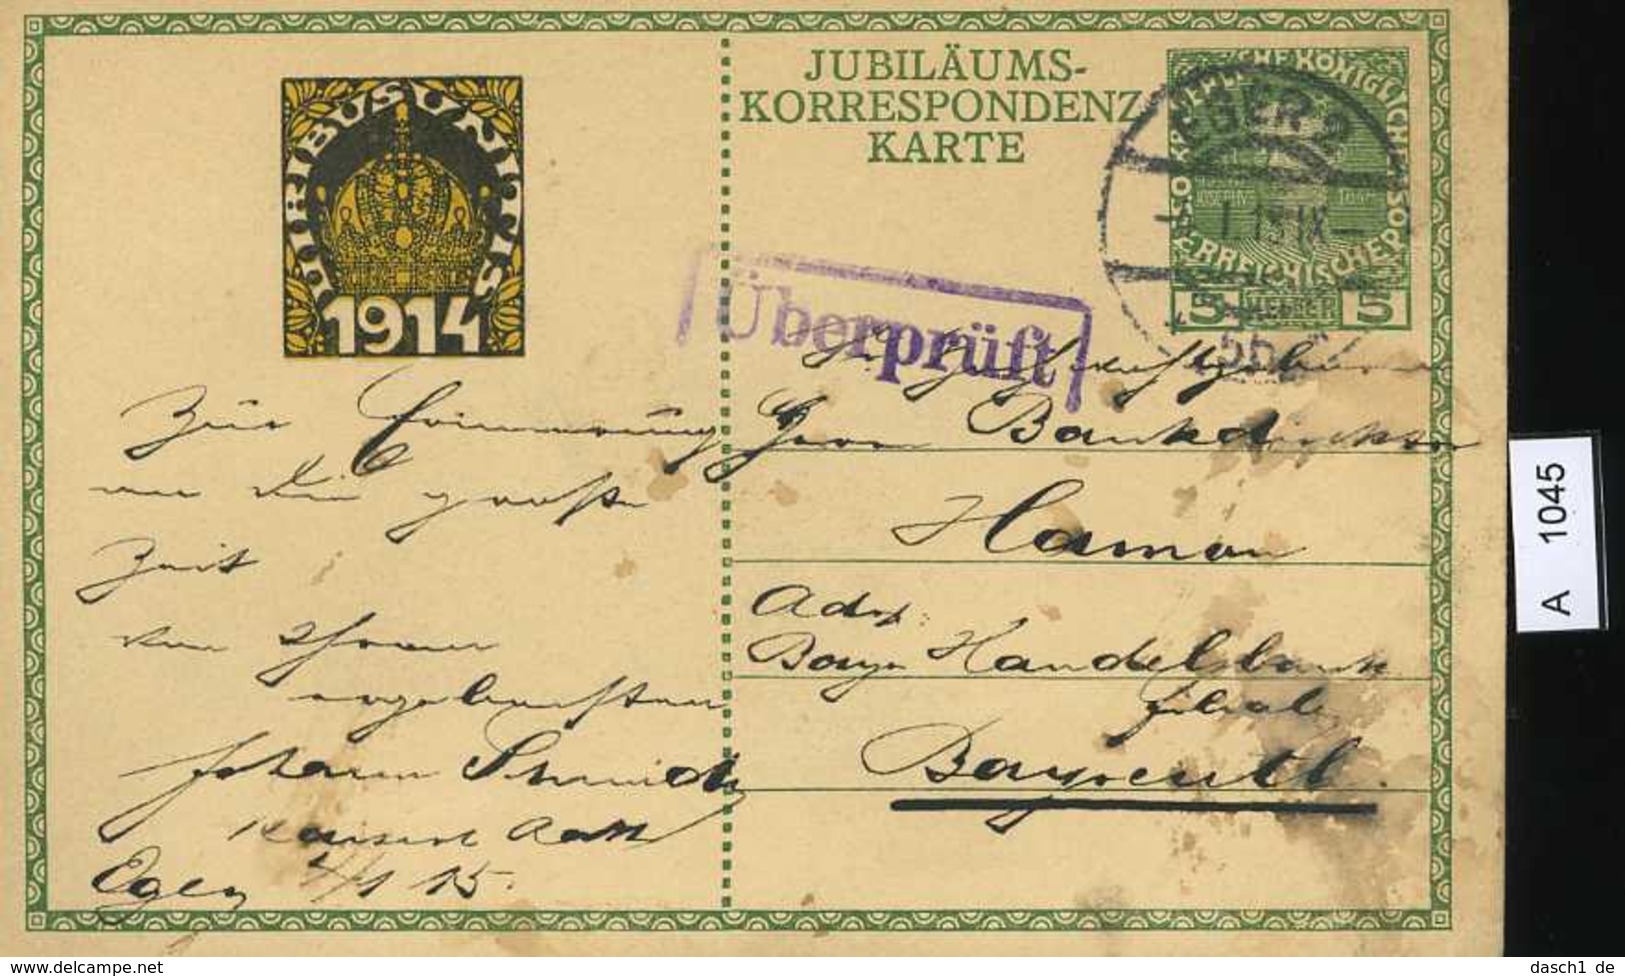 VIRIBUS UNITIS
1914
JUBILÄUMS-
KORRESPONDENZ
KARTE
KAISERLICHE KÖNIGLICHE ÖSTERREICHISCHE POST
5 HELLER 5
EGER 2
Überprüft
Zur Erinnerung
an die große
Zeit
von Ihrem
ergebensten
Johann Schmidt
Eger 4/1 15.
Herrn Bankdirektor
Haman
Adr:
Bayr Handelsbank
Filiale
Bayreuth.
A 1045
www.delcampe.net
dasch1_de